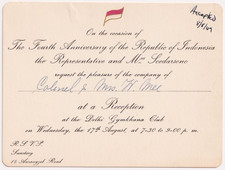 Accepted
On the occasion of
The Fourth Anniversary of the Republic of Indonesia
the Representative and Mrs Soedarsono
request the pleasure of the company of
Colonel & Mrs. H. Mee
at a Reception
at the Delhi Gymkhana Club
on Wednesday, the 17th August, at 7-30 to 9-00 p. m.
R. S. V. P.
Secretary
Road